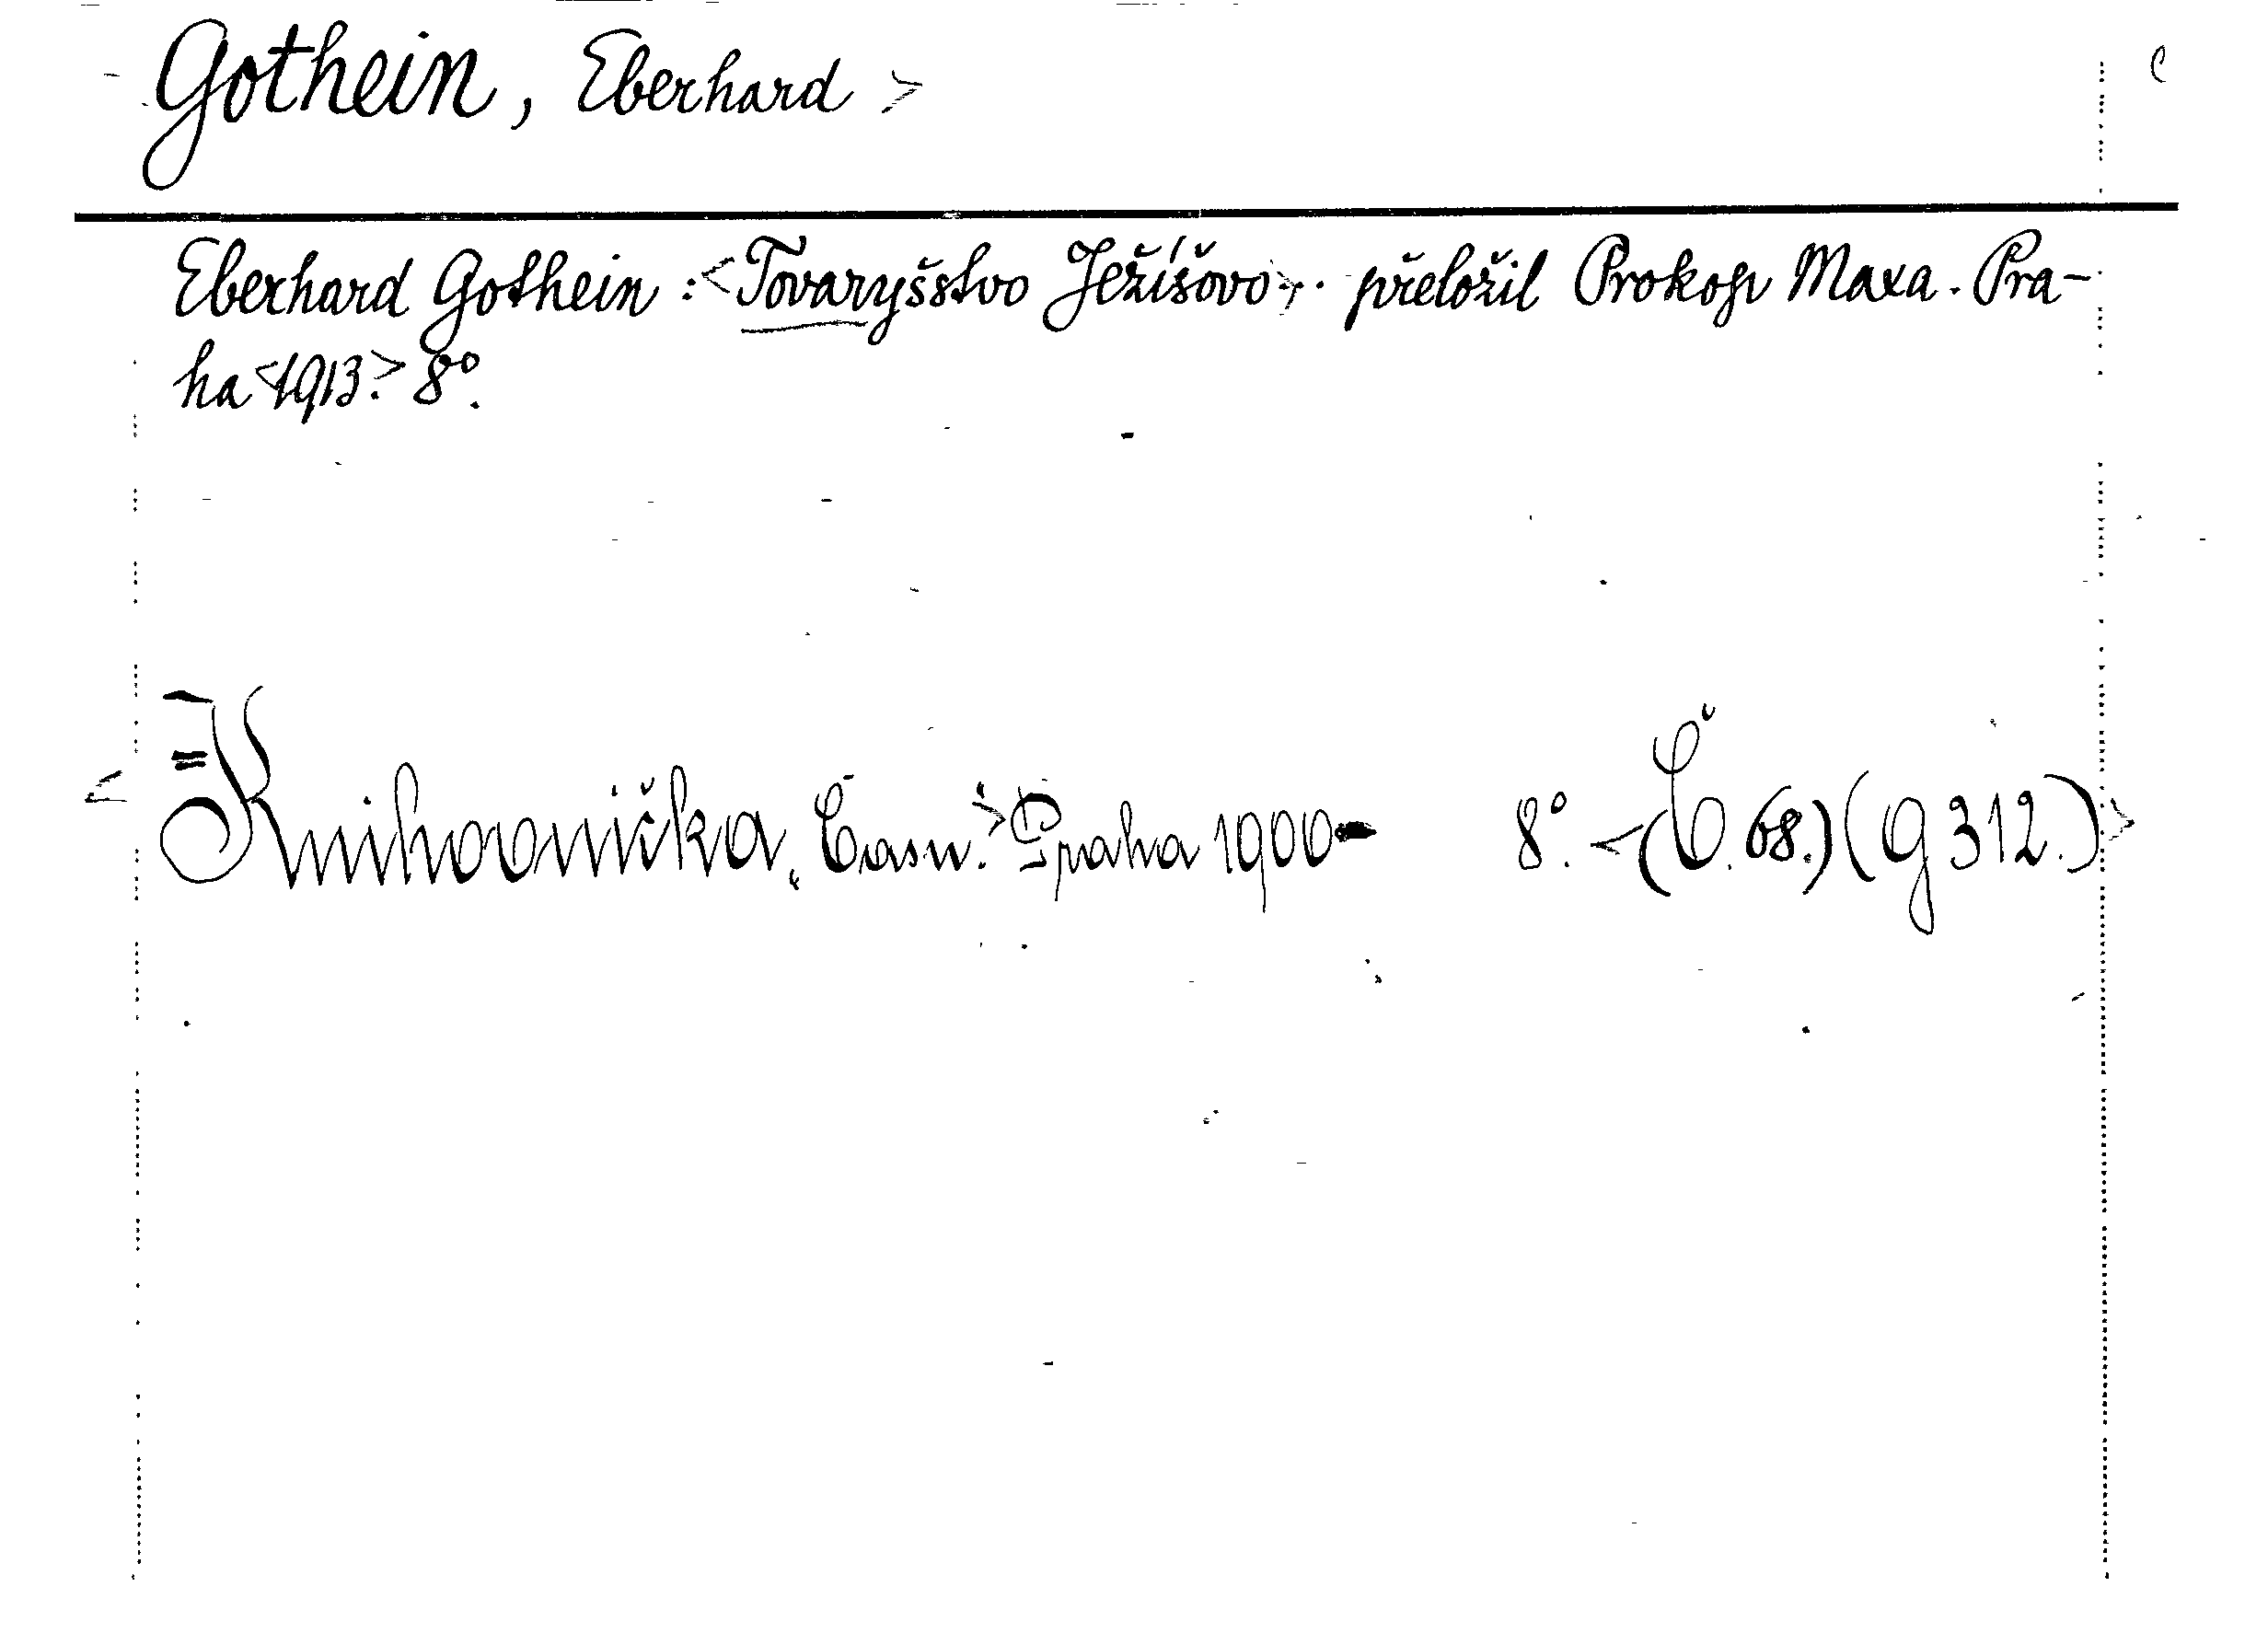 Gothein, Eberhard >
Eberhard Gothein: <Tovaryšstvo Ježíšovo>. přeložil Prokop Maxa. Pra-
ha <1913.> 8°.
<Knihovnička, Času.> Praha 1900- 8°. <(Č. 68.) (g 312.)>